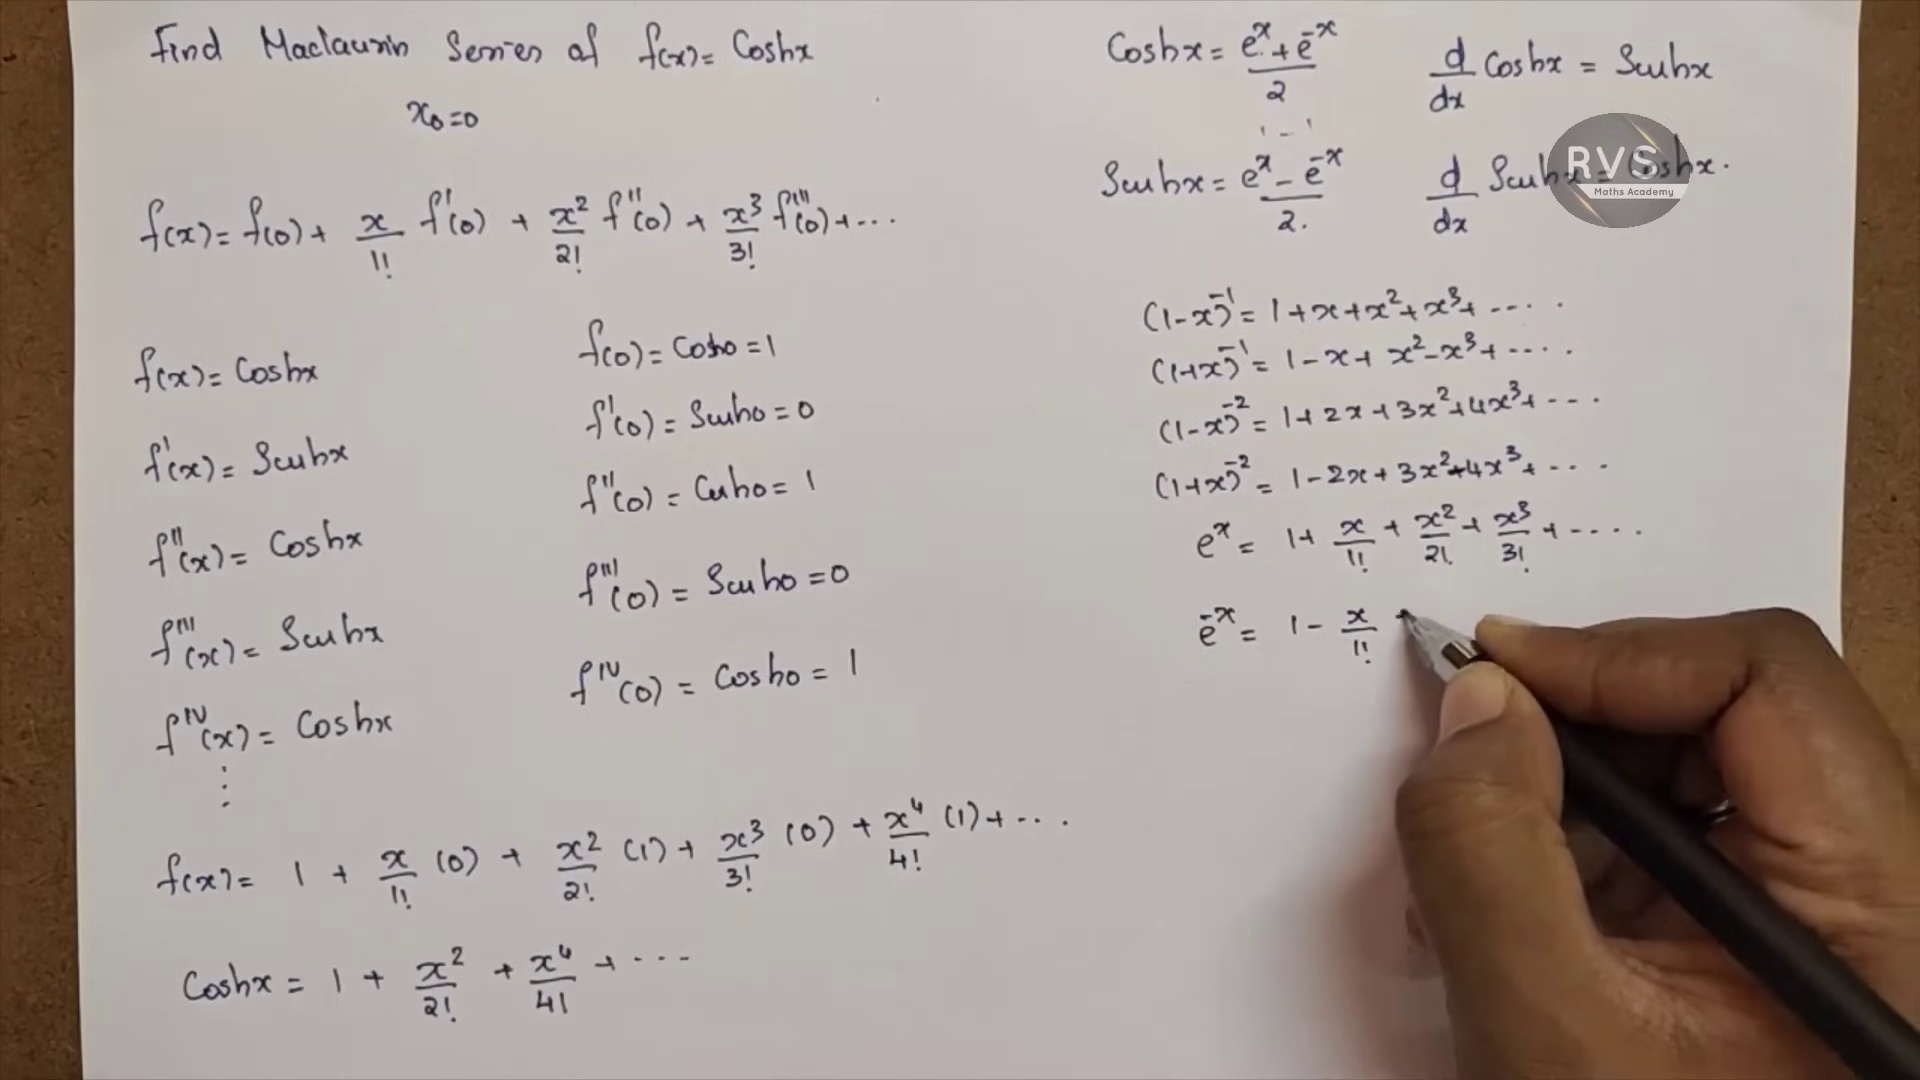 Find Maclaurin Series of f(x) = Coshx
x₀=0
f(x) = f(0) + x/1! f'(0) + x²/2! f''(0) + x³/3! f'''(0) + ...
f(x) = Coshx
f'(x) = Sinhx
f''(x) = Coshx
f'''(x) = Sinhx
f^IV(x) = Coshx
⋮
f(0) = Cosh0 = 1
f'(0) = Sinh0 = 0
f''(0) = Cosh0 = 1
f'''(0) = Sinh0 = 0
f^IV(0) = Cosh0 = 1
f(x) = 1 + x/1! (0) + x²/2! (1) + x³/3! (0) + x⁴/4! (1) + ...
Coshx = 1 + x²/2! + x⁴/4! + ...
Coshx = (e^x + e^-x)/2
d/dx Coshx = Sinhx
1 - 1
Sinhx = (e^x - e^-x)/2.
d/dx Sinhx = Coshx.
RVS
Maths Academy
(1-x)^-1 = 1+x+x²+x³+ .....
(1+x)^-1 = 1-x+x²-x³+ .....
(1-x)^-2 = 1+2x+3x²+4x³+ ....
(1+x)^-2 = 1-2x+3x²-4x³+ ....
e^x = 1+ x/1! + x²/2! + x³/3! + .....
e^-x = 1 - x/1! +